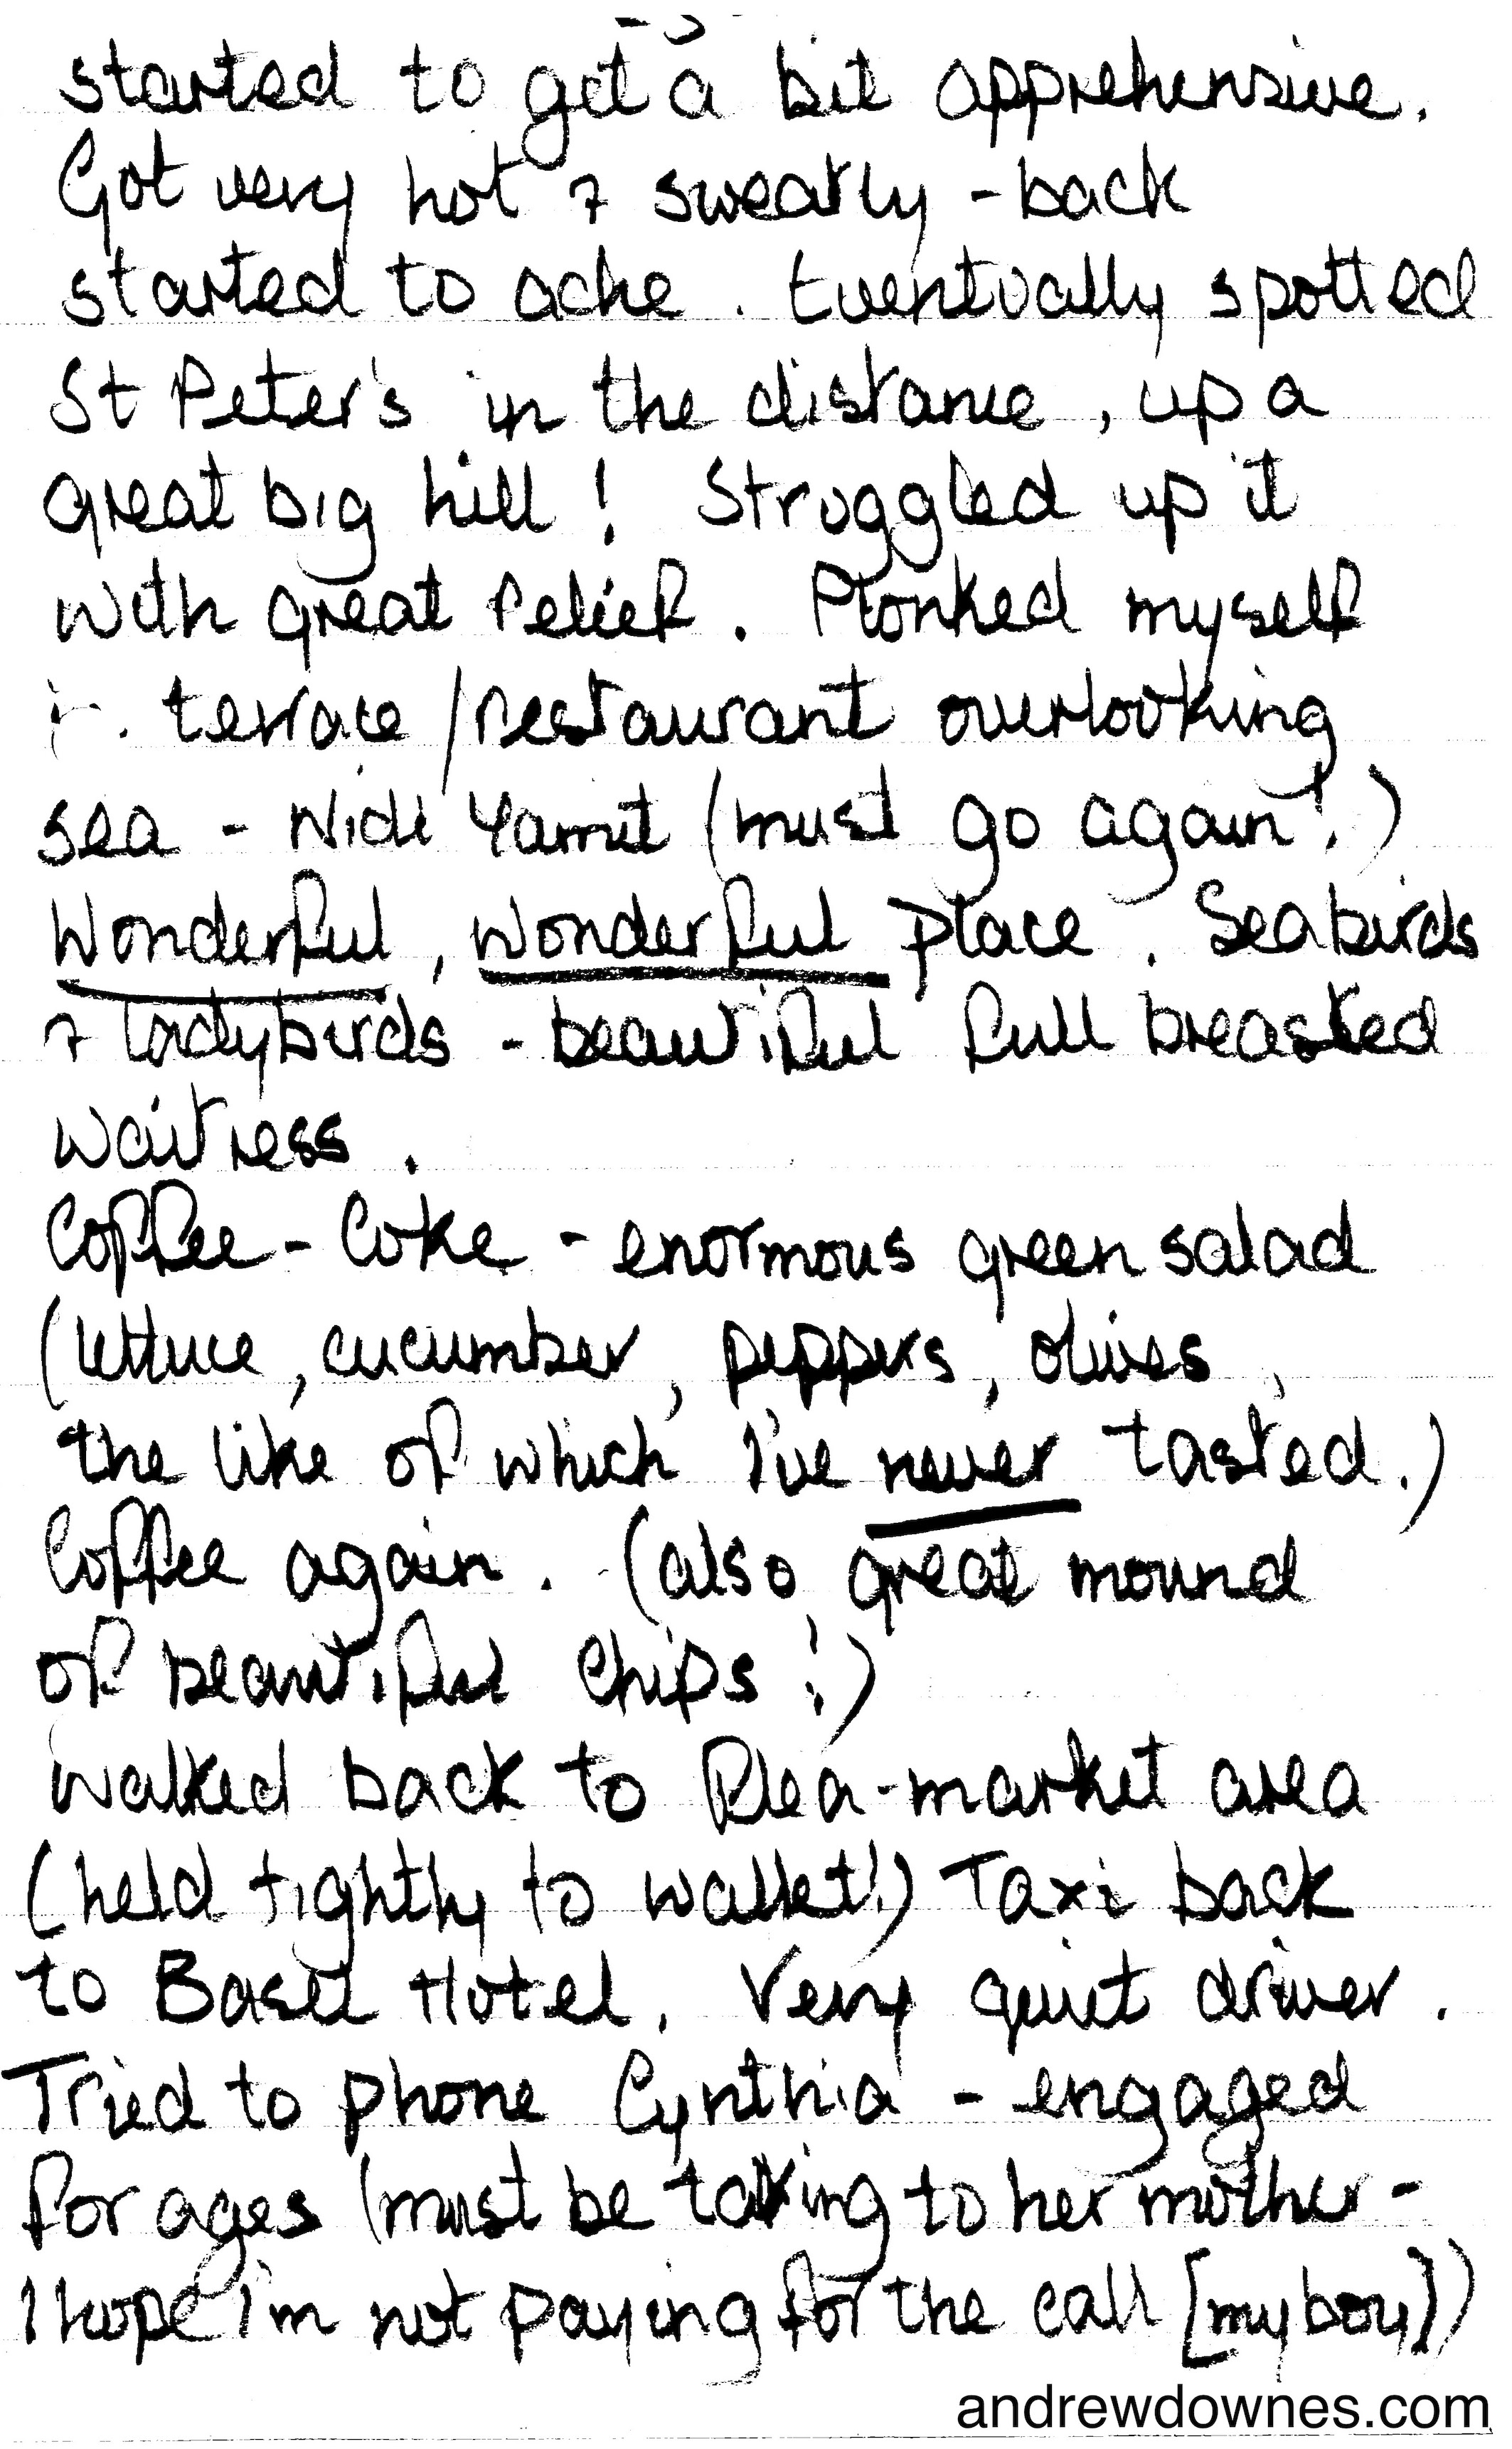 started to get a bit apprehensive.
Got very hot & sweaty - back
started to ache. Eventually spotted
St Peter's in the distance, up a
great big hill! Struggled up it
with great relief. Plonked myself
terrace/restaurant overlooking
sea - Yamit (must go again!)
Wonderful, wonderful place. Seabirds
& ladybirds - beautiful full breasted
waitress.
Coffee - Coke - enormous green salad
(lettuce, cucumber, peppers, olives,
the like of which I've never tasted.)
Coffee again. (also great mound
of beautiful chips!)
Walked back to flea-market area
(held tightly to wallet!) Taxi back
to Basel Hotel. Very quiet driver.
Tried to phone Cynthia - engaged
for ages (must be talking to her mother -
I hope I'm not paying for the call [my boy])
andrewdownes.com